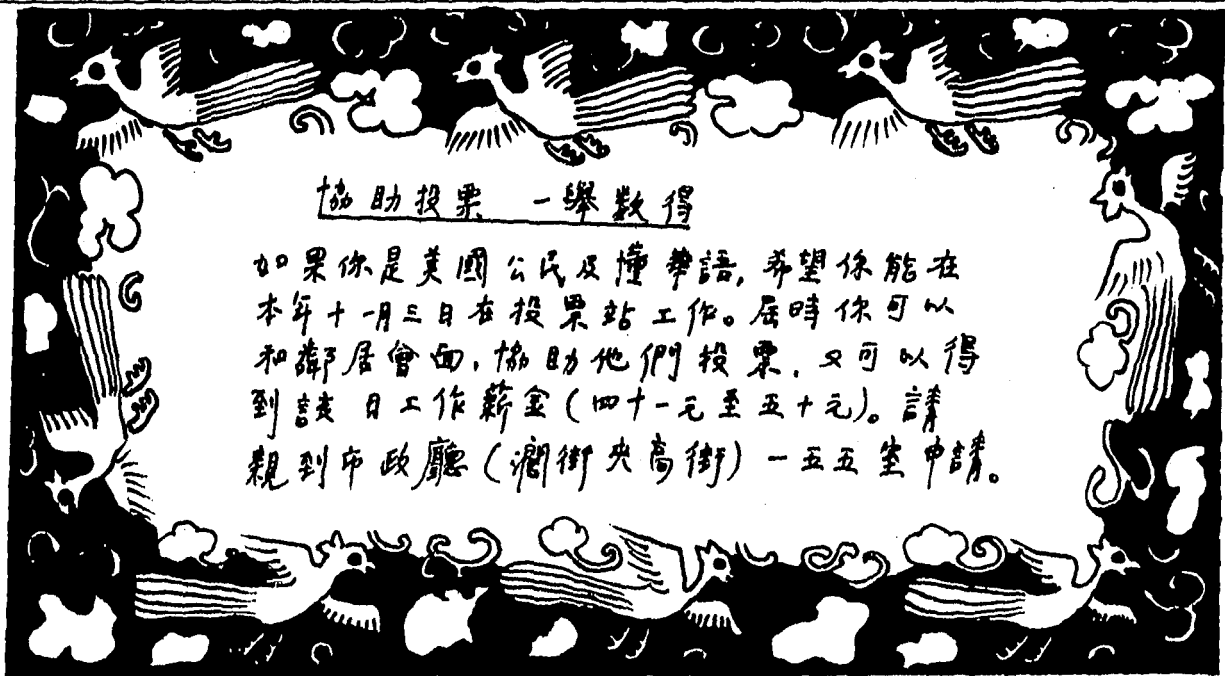 協助投票 一舉數得
如果你是美國公民及懂華語,希望你能在
本年十一月三日在投票站工作。屆時你可以
和鄰居會面,協助他們投票,又可以得
到該日工作薪金(四十一元至五十元)。請
親到市政廳(街夾高街)一五五室申請。